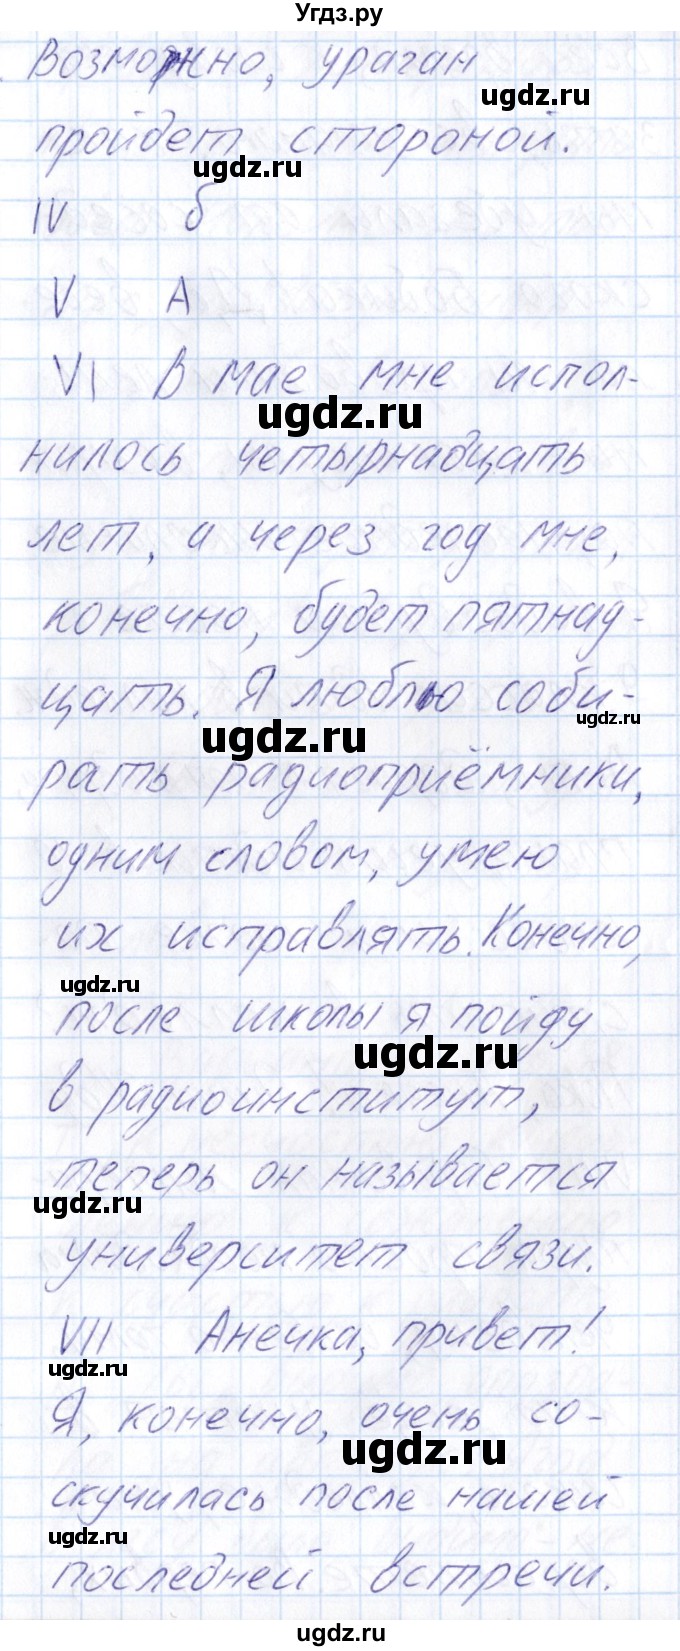 Угдз.ру
Возможно, ураган
ugdz.ru
пройдет стороной.
ugdz.ru
IV б
V А
VI В мае мне испол-
ugdz.ru
нилось четырнадцать
лет, а через год мне,
конечно, будет пятнад-
цать. Я люблю соби-
ugdz.ru
ugdz.ru
рать радиоприёмники,
одним словом, умею
их исправлять. Конечно,
ugdz.ru
после школы я пойду
ugdz.ru
в радиоинститут,
теперь он называется
ugdz.ru
университет связи.
VII Анечка, привет!
ugdz.ru
Я, конечно, очень со-
ugdz.ru
скучилась после нашей
ugdz.ru
последней встречи.
ugdz.ru